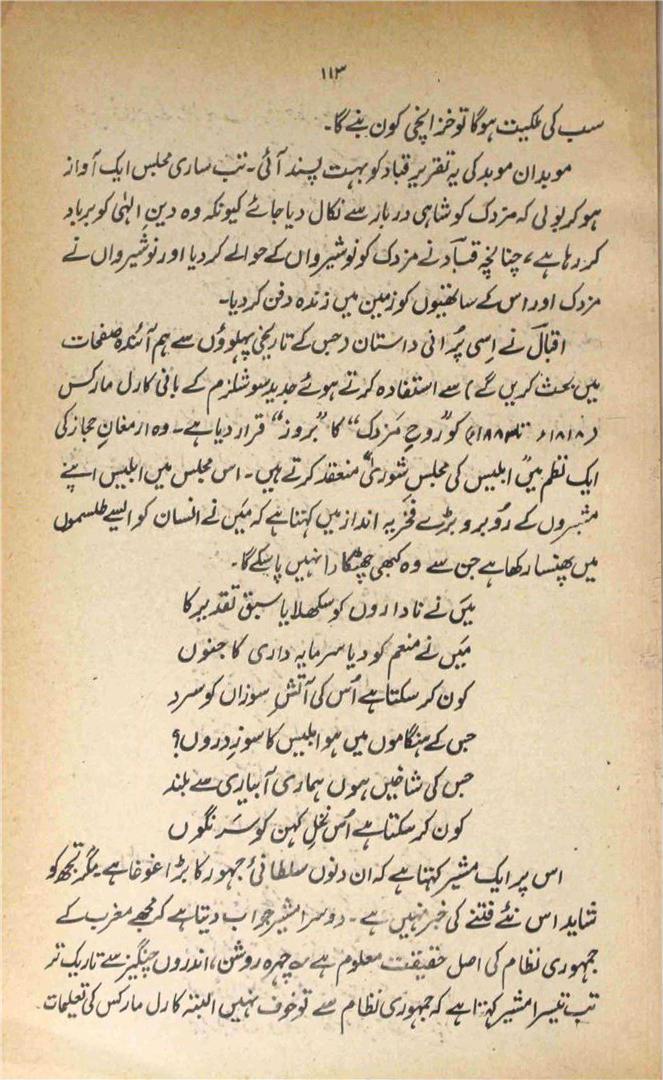 ۱۱۳
سب کی ملکیت ہوگا تو خزانچی کون بنے گا۔
موبدان موبد کی یہ تقریر قباد کو بہت پسند آئی۔ تب ساری مجلس ایک آواز
ہو کر بولی کہ مزدک کو شاہی دربار سے نکال دیا جائے کیونکہ وہ دینِ الہٰی کو برباد
کر رہا ہے، چنانچہ قباد نے مزدک کو نوشیرواں کے حوالے کر دیا اور نوشیرواں نے
مزدک اور اس کے ساتھیوں کو زمین میں زندہ دفن کر دیا۔
اقبال نے اِسی پُرانی داستان (جس کے تاریخی پہلوؤں سے ہم آئندہ صفحات
میں بحث کریں گے) سے استفادہ کرتے ہوئے جدید سوشلزم کے بانی کارل مارکس
(۱۸۱۸ء تا ۱۸۸۳ء) کو "روحِ مَزدک" کا "بروز" قرار دیا ہے۔ وہ ارمغانِ حجاز کی
ایک نظم میں "ابلیس کی مجلسِ شوریٰ" منعقد کرتے ہیں۔ اس مجلس میں ابلیس اپنے
مشیروں کے رُوبرو بڑے فخریہ انداز میں کہتا ہے کہ مَیں نے انسان کو ایسے طلسموں
میں پھنسا رکھا ہے جن سے وہ کبھی چھٹکارا نہیں پا سکے گا۔
مَیں نے ناداروں کو سکھلایا سبق تقدیر کا
مَیں نے منعم کو دیا سرمایہ داری کا جنوں
کون کر سکتا ہے اُس کی آتشِ سوزاں کو سرد
جس کے ہنگاموں میں ہو ابلیس کا سوزِ دروں؟
جس کی شاخیں ہوں ہماری آبیاری سے بلند
کون کر سکتا ہے اُس نخلِ کہن کو سَرنگوں
اس پر ایک مشیر کہتا ہے کہ ان دنوں سلطانیٔ جمہور کا بڑا غوغا ہے مگر تجھ کو
شاید اس نئے فتنے کی خبر نہیں ہے۔ دوسرا مشیر جواب دیتا ہے کہ مجھے مغرب کے
جمہوری نظام کی اصل حقیقت معلوم ہے ؎ چہرہ روشن، اندروں چنگیز سے تاریک تر
تب تیسرا مشیر کہتا ہے کہ جمہوری نظام سے تو خوف نہیں البتہ کارل مارکس کی تعلیمات